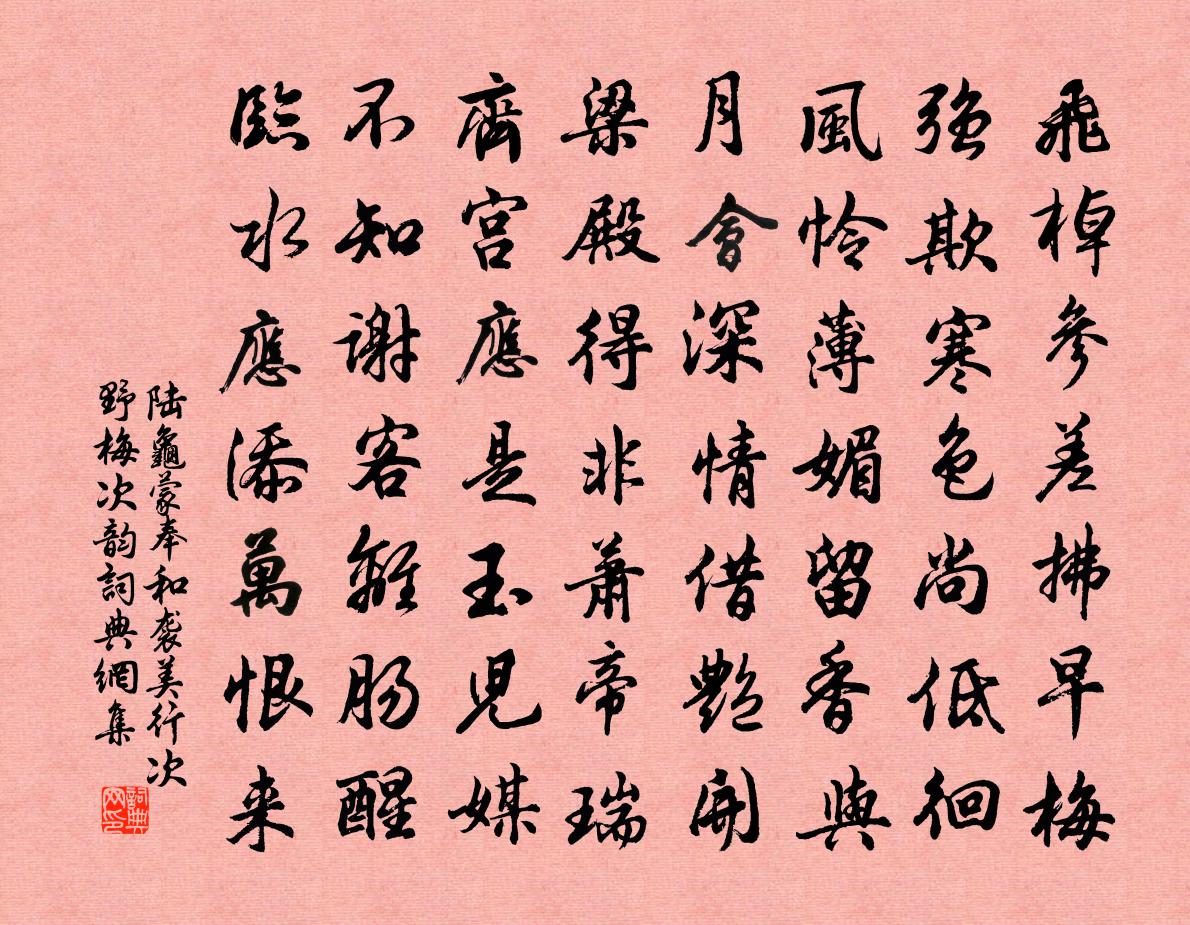 飛棹參差拂早梅
強欺寒色尚低徊
風怜薄媚留香與
月會深情借艷開
梁殿得非蕭帝瑞
齊宮應是玉兒媒
不知謝客離腸醒
臨水應添萬恨来
陆龜蒙奉和袭美行次
野梅次韵詞典網集
詞典网印